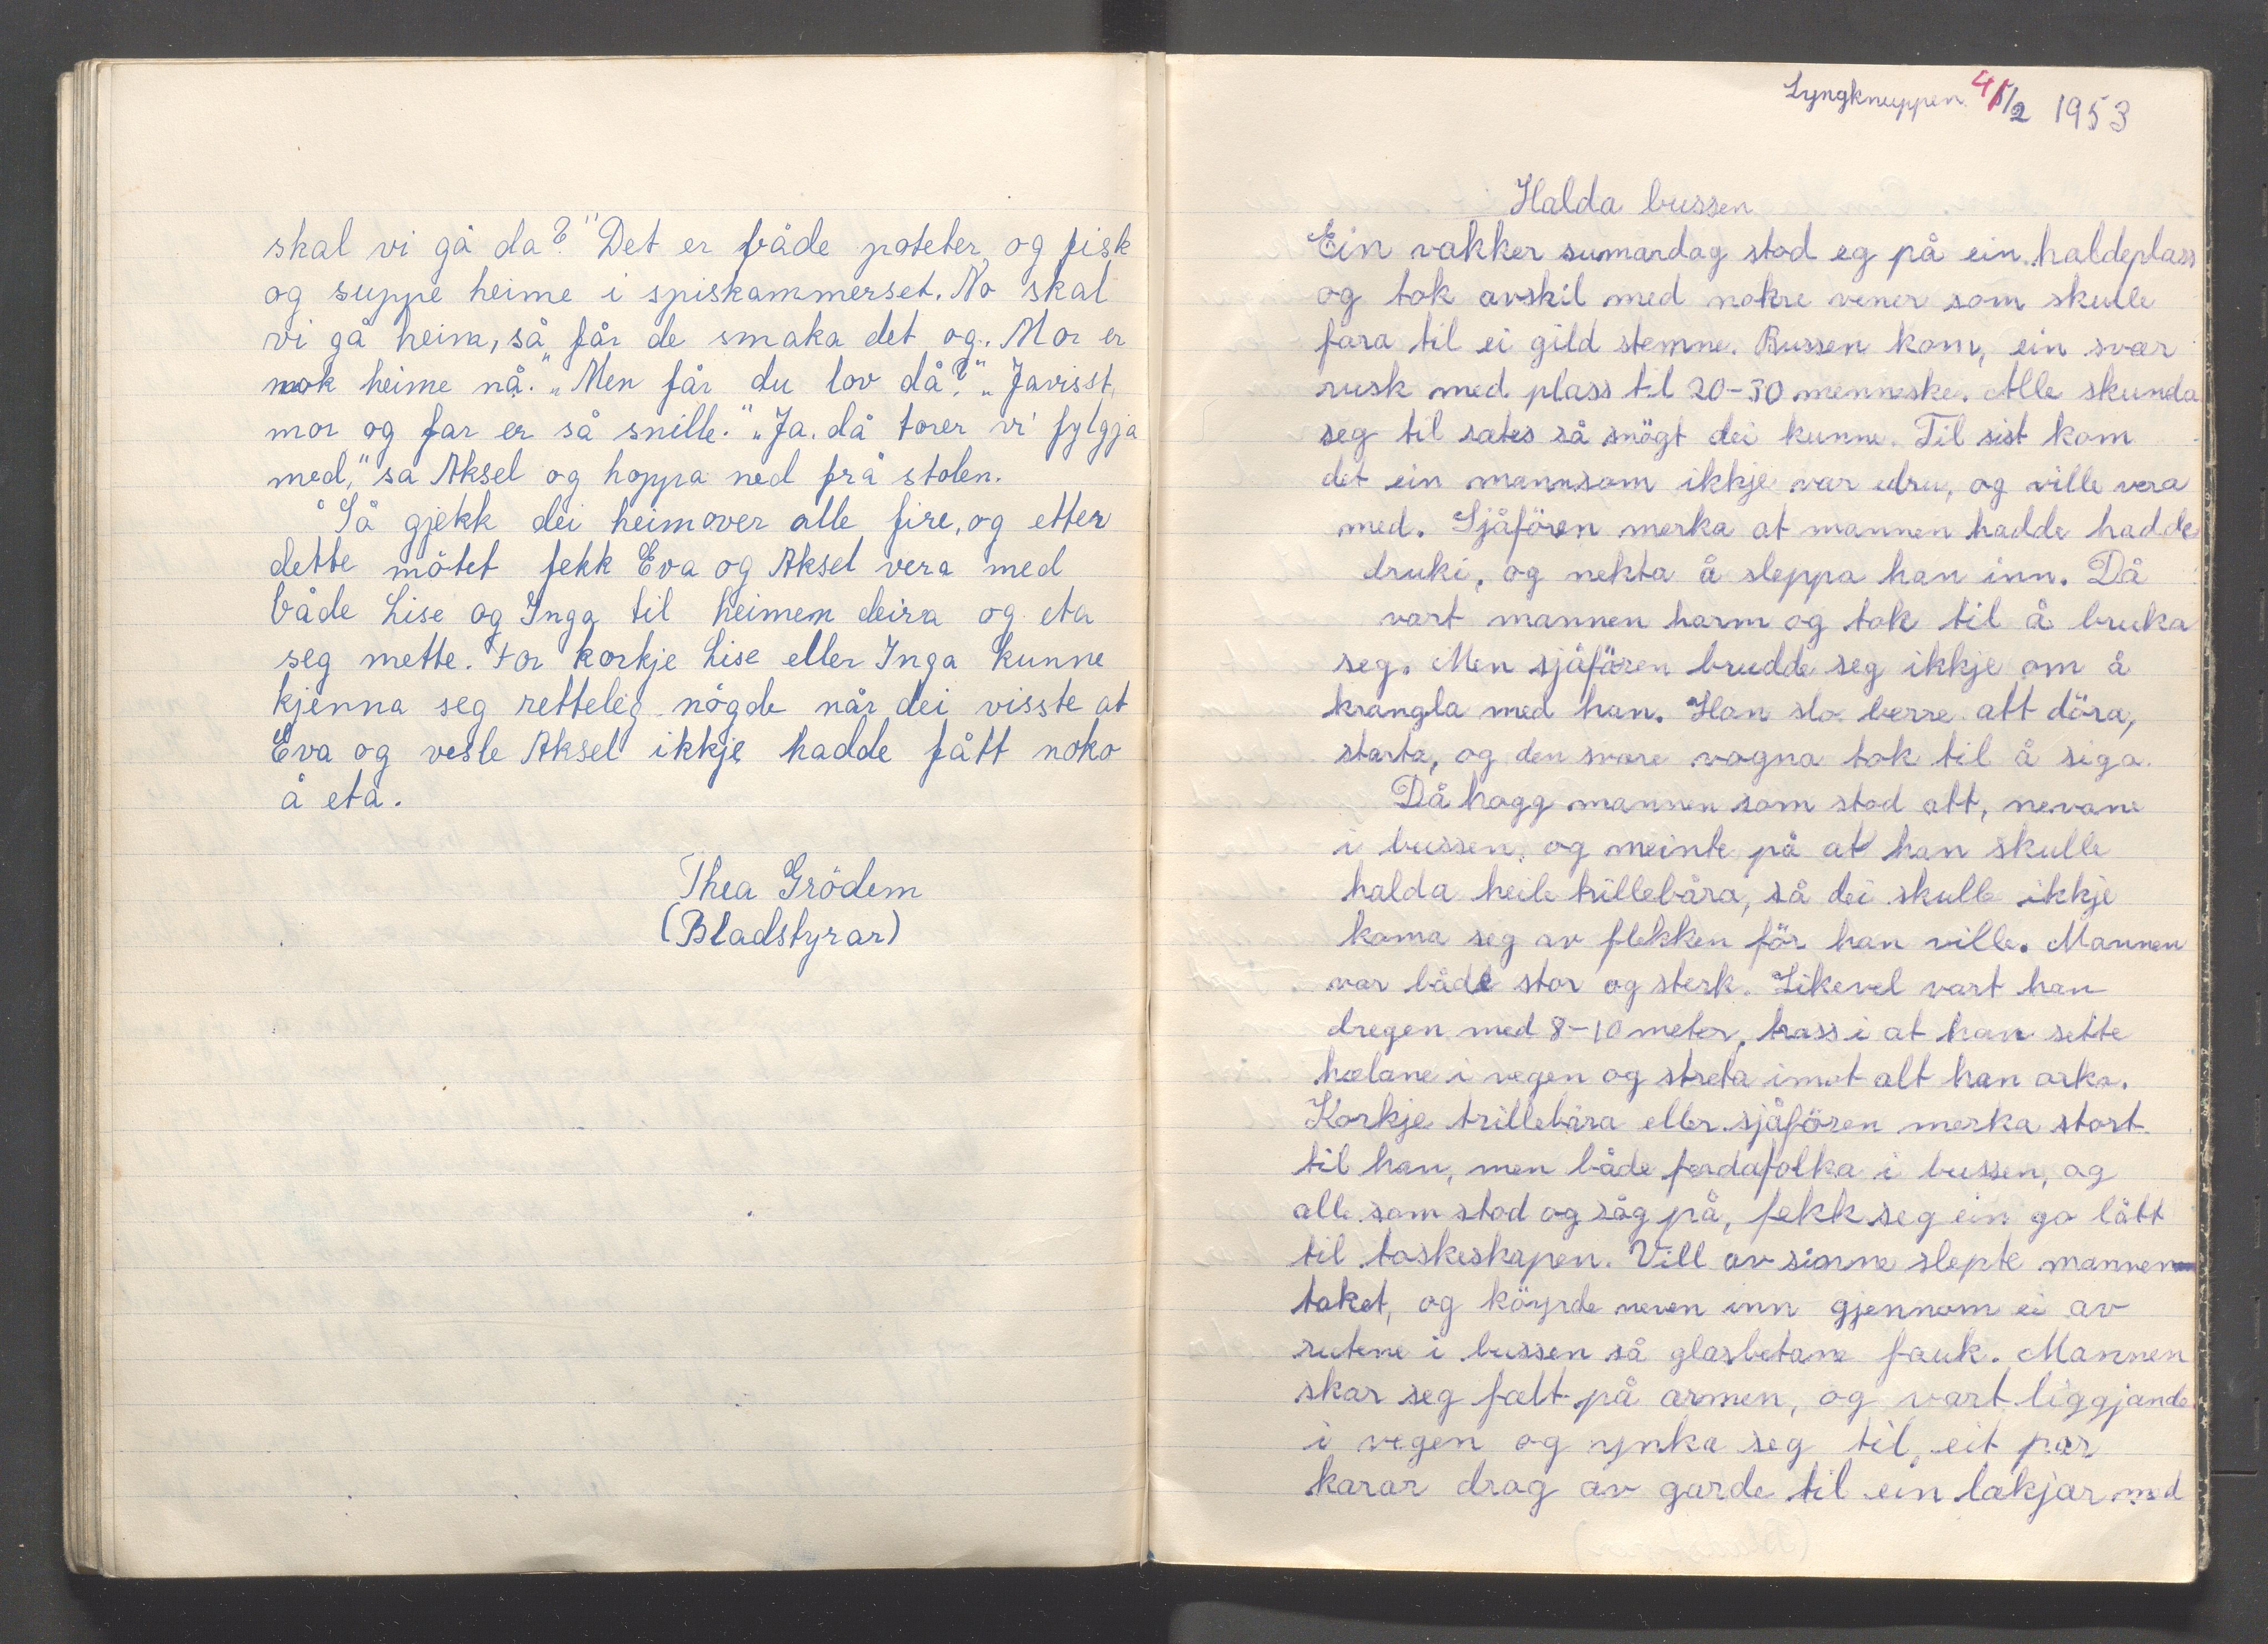 skal vi gå da?" Det er både poteter og fisk
og suppe heime i spiskammerset. No skal
vi gå heim, så får de smaka det og. Mor er
nok heime nå." „Men får du lov då?" „Javisst,
mor og far er så snille." „Ja. då torer vi fylgja
med," sa Aksel og hoppa ned frå stolen.
Så gjekk dei heimover alle fire, og etter
dette mötet fekk Eva og Aksel vera med
både Lise og Inga til heimen deira og eta
seg mette. For korkje Lise eller Inga kunne
kjenna seg retteleg nögde når dei visste at
Eva og vesle Aksel ikkje hadde fått noko
å eta.
Thea Grödem
(Bladstyrar)
Lyngknuppen 4/2 1953
Halda bussen
Ein vakker sumardag stod eg på ein haldeplass
og tok avskil med nokre vener som skulle
fara til ei gild stemne. Bussen kom, ein svær
rusk med plass til 20-30 menneske. Alle skunda
seg til sætes så snögt dei kunne. Til sist kom
det ein mann som ikkje var edru, og ville vera
med. Sjåfören merka at mannen hadde hadde
druki, og nekta å sleppa han inn. Då
vart mannen harm og tok til å bruka
seg. Men sjåfören brudde seg ikkje om å
krangla med han. Han slo berre att döra,
starta, og den svære vogna tok til å siga.
Då hogg mannen som stod att, nevane
i bussen, og meinte på at han skulle
halda heile trillebåra, så dei skulle ikkje
koma seg av flekken för han ville. Mannen
var både stor og sterk. Likevel vart han
dregen med 8-10 meter, trass i at han sette
hælane i vegen og streta imot alt han orka.
Korkje trillebåra eller sjåfören merka stort
til han, men både ferdafolka i bussen, og
alle som stod og såg på, fekk seg ein go lått
til toskeskapen. Vill av sinne slepte mannen
taket, og köyrde neven inn gjennom ei av
rutene i bussen så glasbetane fauk. Mannen
skar seg fælt på armen, og vart liggjande
i vegen og ynka seg til, eit par
karar drog av garde til ein lækjar med